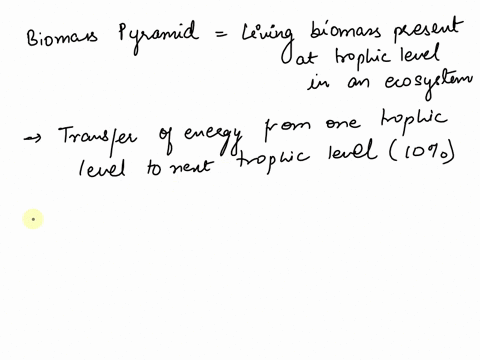 Biomass Pyramid = Living biomass present
at trophic level
in an ecosystem
→ Transfer of energy from one trophic
level to next trophic level (10%)